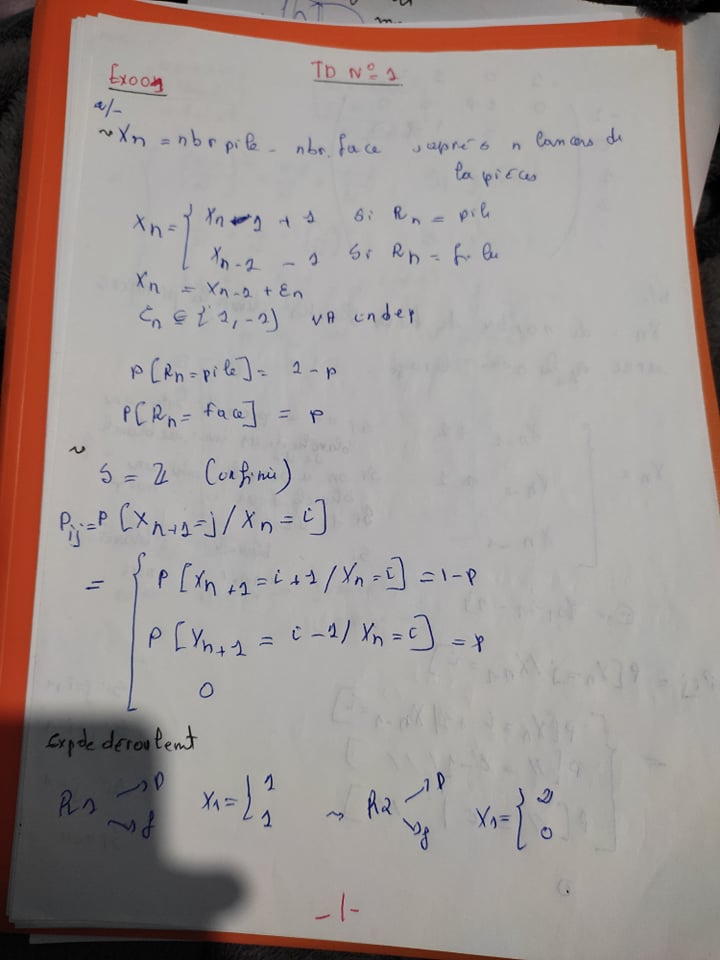 TD N°=1
Exo01
a/-
~ Xn = nbr pile - nbr. face après n lancers de
la pièces
Xn = { Xn-1 + 1 si Rn = pile
Xn-1 - 1 si Rn = face
Xn = Xn-1 + εn
εn ∈ {1, -1} VA indep
P[Rn = pile] = 1 - p
P[Rn = face] = p
~
S = ℤ (infinie)
Pij = P[Xn+1 = j / Xn = i]
= { P[Xn+1 = i+1 / Xn = i] = 1-p
P[Xn+1 = i-1 / Xn = i] = p
0
Exp de déroulement
R1 → P → f X1 = { 1 1 ~ R2 → P → f X1 = { 2 0
-1-